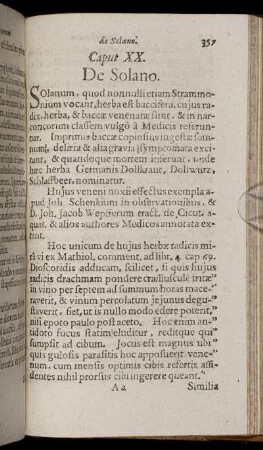 de Solano.
357
Caput XX.
De Solano.
Solanum, quod nonnulli etiam Strammo-
nium vocant, herba est baccifera, cujus ra-
dix, herba, & baccæ venenatæ sunt, & in nar-
coticorum classem vulgò à Medicis referun-
tur. Imprimis baccæ copiosius ingestæ somnum,
deliria & alia gravia symptomata exci-
tant, & quandoque mortem inferunt, unde
hæc herba Germanis Dollkraut, Dollwurtz,
Schlaffbeer, nominatur.
Hujus veneni nocui effectus exempla a-
pud Joh. Schenkium in observationibus, &
D. Joh. Jacob Wepfferum tract. de Cicut.
aquat. & alios authores Medicos annotata ex-
tant.
Hoc unicum de hujus herbæ radicis mi-
ra vi ex Mathiol. comment. ad libr. 4. cap. 69.
Dioscoridis adducam, scilicet, si quis hujus
radicis drachmam pondere crassiusculè tritæ
in vino per septem ad summum horas mace-
raverit, & vinum percolatum jejunus degu-
staverit, fiet, ut is nullo modo edere poterit,
nisi epoto paulo post aceto. Hoc enim an-
doto fucus statim eliditur, reditque qui
sumpsit ad cibum. Jocus est magnus ubi
quis gulosis parasitis hoc apposuerit vene-
num, cum mensis optimis cibis refertis assi-
dentes nihil prorsus cibi ingerere queant.
A a
Similia